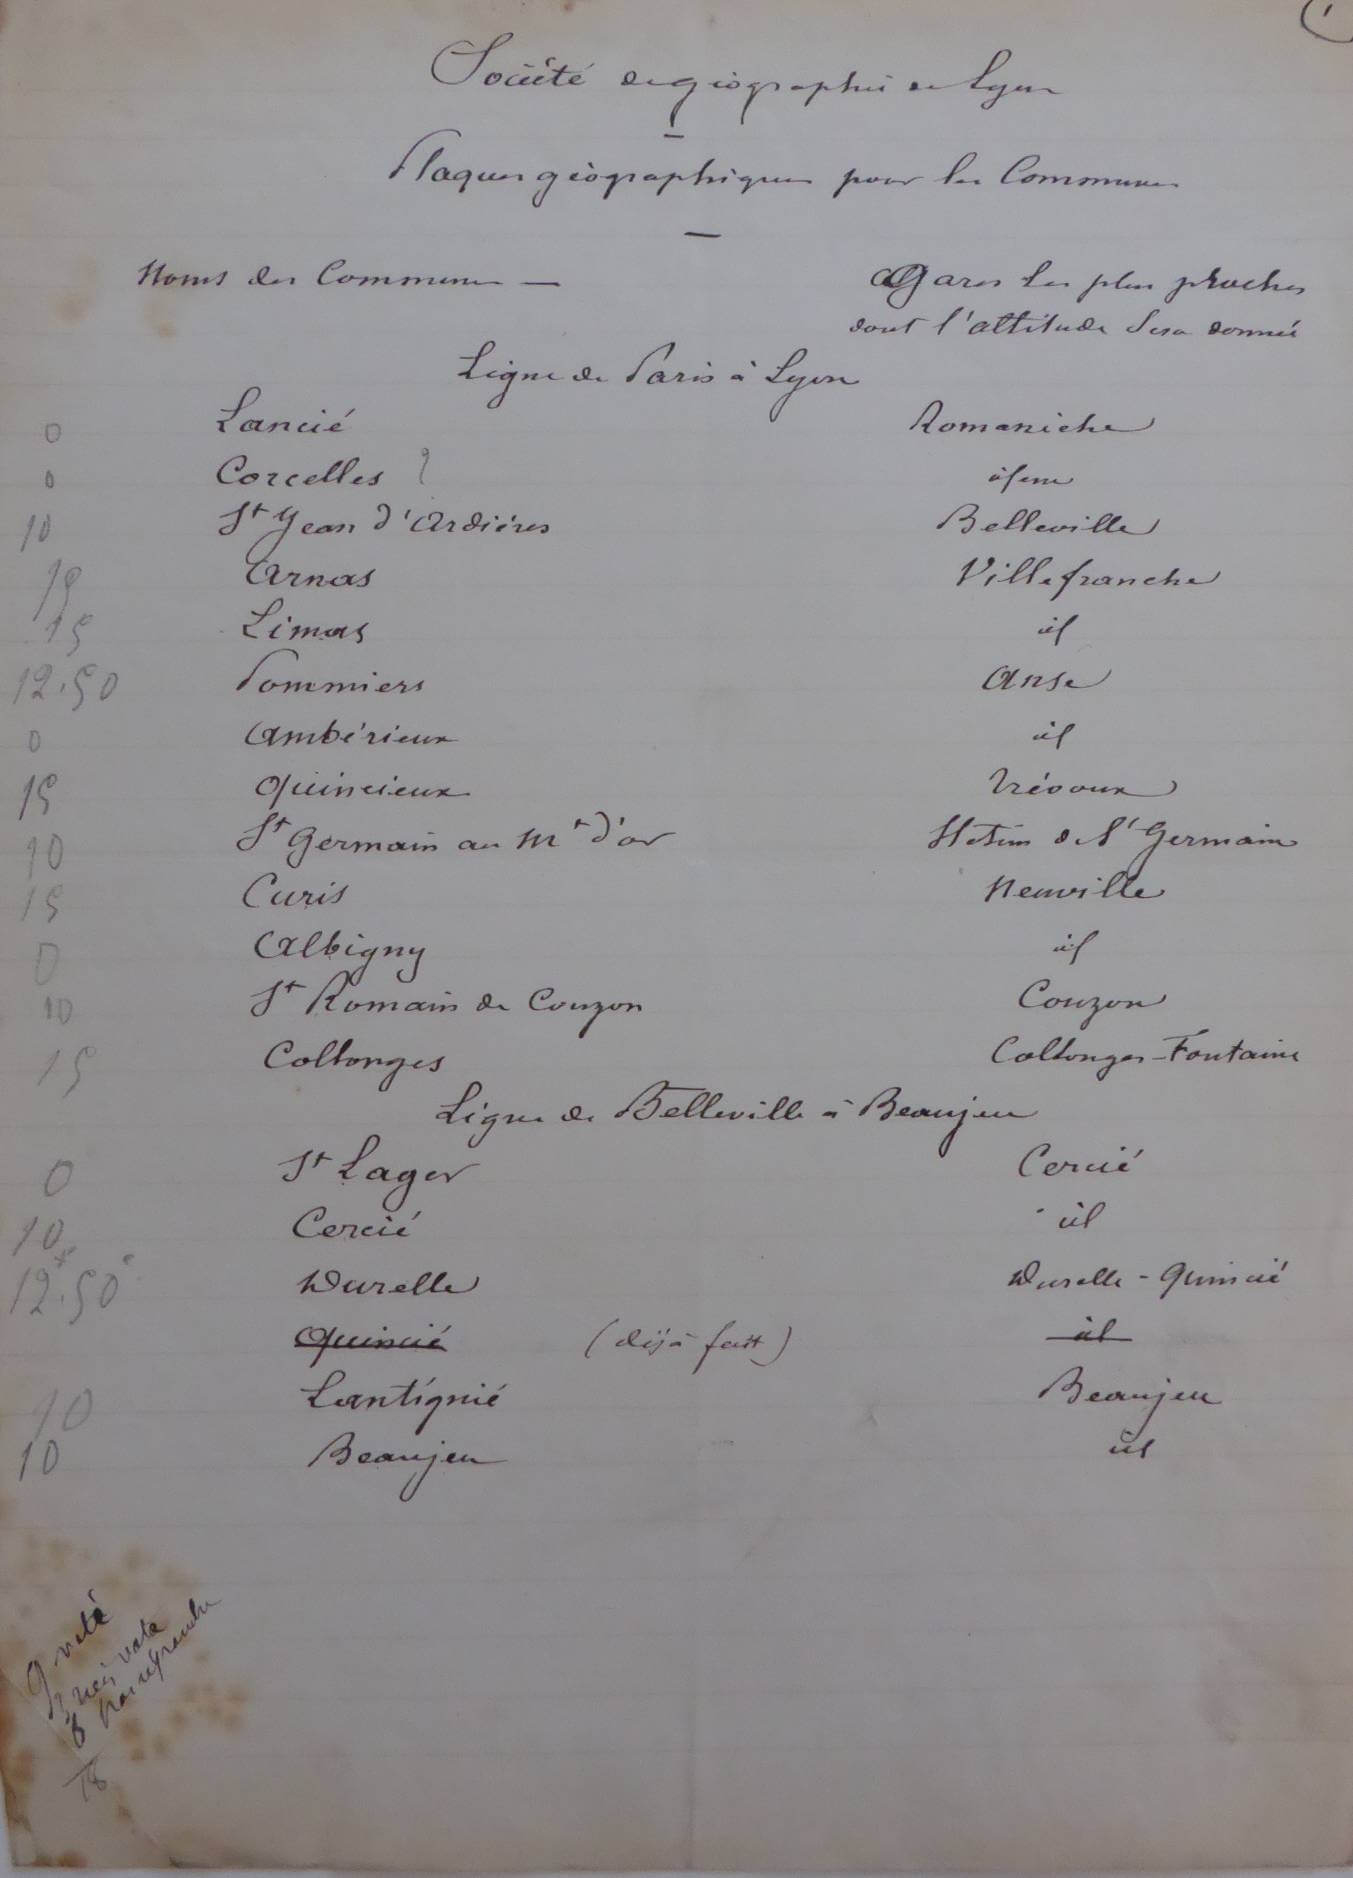 1
Société de géographie de Lyon
—
Plaques géographiques pour les Communes
—
Noms des Communes — Gares les plus proches
dont l'altitude sera donnée
Ligne de Paris à Lyon
0 Lancié Romanèche
0 Corcelles ? idem
10 St Jean d'Ardières Belleville
15 Arnas Villefranche
15 Limas id
12.50 Pommiers Anse
0 Ambérieux id
15 Quincieux Trévoux
10 St Germain au Mt d'or Station de St Germain
15 Curis Neuville
0 Albigny id
10 St Romain de Couzon Couzon
15 Collonges Collonges-Fontaine
Ligne de Belleville à Beaujeu
0 St Lager Cercié
10 Cercié id
12.50 Durette Durette-Quincié
Quincié (déjà fait) id
10 Lantignié Beaujeu
10 Beaujeu id
9 voté
3 pas voté
6
18